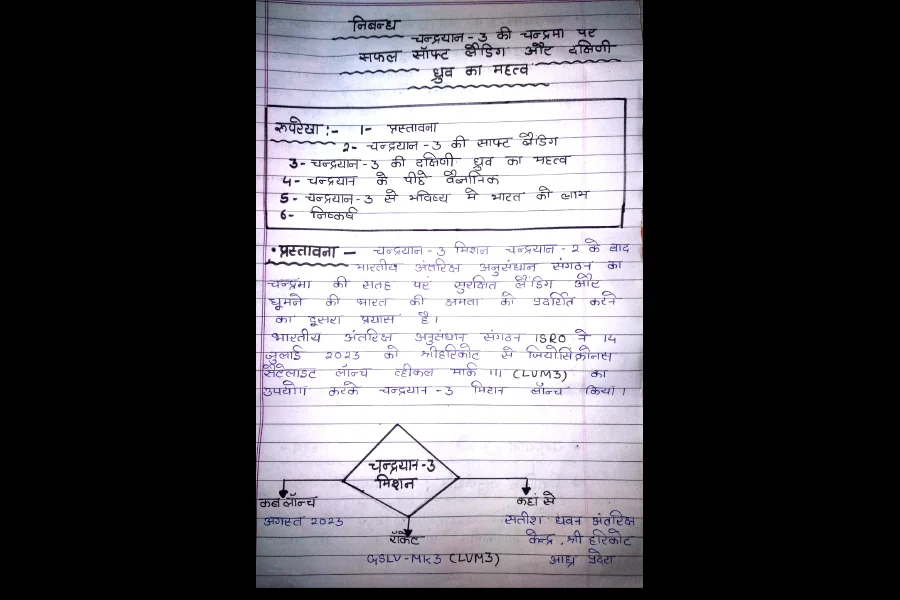 निबन्ध
चन्द्रयान-3 की चन्द्रमा पर
सफल सॉफ्ट लैंडिंग और दक्षिणी
ध्रुव का महत्व
रूपरेखा :- 1- प्रस्तावना
2- चन्द्रयान-3 की साफ्ट लैंडिंग
3- चन्द्रयान-3 की दक्षिणी ध्रुव का महत्व
4- चन्द्रयान के पीछे वैज्ञानिक
5- चन्द्रयान-3 से भविष्य मे भारत को लाभ
6- निष्कर्ष
• प्रस्तावना — चन्द्रयान-3 मिशन चन्द्रयान-2 के बाद
भारतीय अंतरिक्ष अनुसंधान संगठन का
चन्द्रमा की सतह पर सुरक्षित लैंडिंग और
घूमने की भारत की क्षमता को प्रदर्शित करने
का दूसरा प्रयास है।
भारतीय अंतरिक्ष अनुसंधान संगठन ISRO ने 14
जुलाई 2023 को श्रीहरिकोट से जियोसिंक्रोनस
सैटेलाइट लॉन्च व्हीकल मार्क III (LVM3) का
उपयोग करके चन्द्रयान-3 मिशन लॉन्च किया।
चन्द्रयान-3
मिशन
कब लॉन्च
अगस्त 2023
रॉकेट
GSLV-MK3 (LVM3)
कहां से
सतीश धवन अंतरिक्ष
केन्द्र, श्री हरिकोट
आंध्र प्रदेश